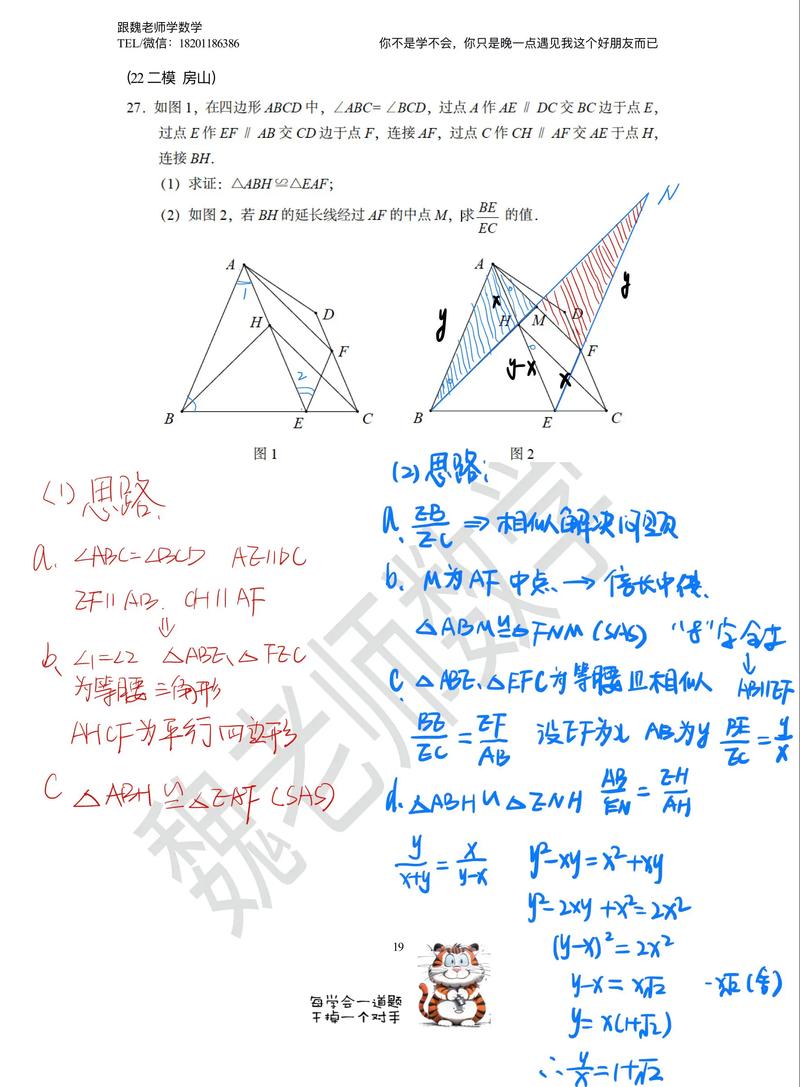 跟魏老师学数学
TEL/微信：18201186386
你不是学不会，你只是晚一点遇见我这个好朋友而已
(22 二模 房山)
27．如图 1，在四边形 ABCD 中，∠ABC= ∠BCD，过点 A 作 AE ∥ DC 交 BC 边于点 E，
过点 E 作 EF ∥ AB 交 CD 边于点 F，连接 AF，过点 C 作 CH ∥ AF 交 AE 于点 H，
连接 BH．
(1) 求证：△ABH≌△EAF；
(2) 如图 2，若 BH 的延长线经过 AF 的中点 M，求 BE/EC 的值．
A
1
H
D
F
2
B
E
C
图 1
N
A
y
x
y
H
M
D
F
y-x
x
B
E
C
图 2
(1) 思路：
a. ∠ABC=∠BCD AE∥DC
EF∥AB. CH∥AF
⇓
b、∠1=∠2 △ABE、△FEC
为等腰三角形
AHCF为平行四边形
C △ABH≌△EAF (SAS)
(2) 思路：
a、EB/EC ⇒ 相似解决问题
b. M为AF中点 → 倍长中线.
△ABM≌△FNM (SAS) "8"字全等
↓
AB∥EF
C、△ABE、△EFC为等腰且相似
BE/EC = EF/AB 设EF为x AB为y BE/EC = y/x
d. △ABH∽△ENH AB/EN = EH/AH
y/x+y = x/y-x y²-xy=x²+xy
y²-2xy+x²=2x²
(y-x)²=2x²
y-x=x√2 -x√2 (舍)
y=x(1+√2)
∴ y/x=1+√2
19
每学会一道题
干掉一个对手
魏老师数学